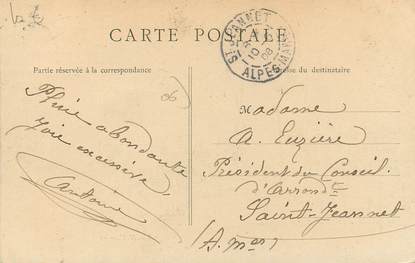 CARTE POSTALE
ST JEANNET
10
08
ALPES MARIMES
Partie réservée à la correspondance
du destinataire
Pluie abondante
Joie excessive.
Antoine
Madame
A. Euzière
Président du Conseil
d'Arrondt
Saint-Jeannet
(A. Mes)